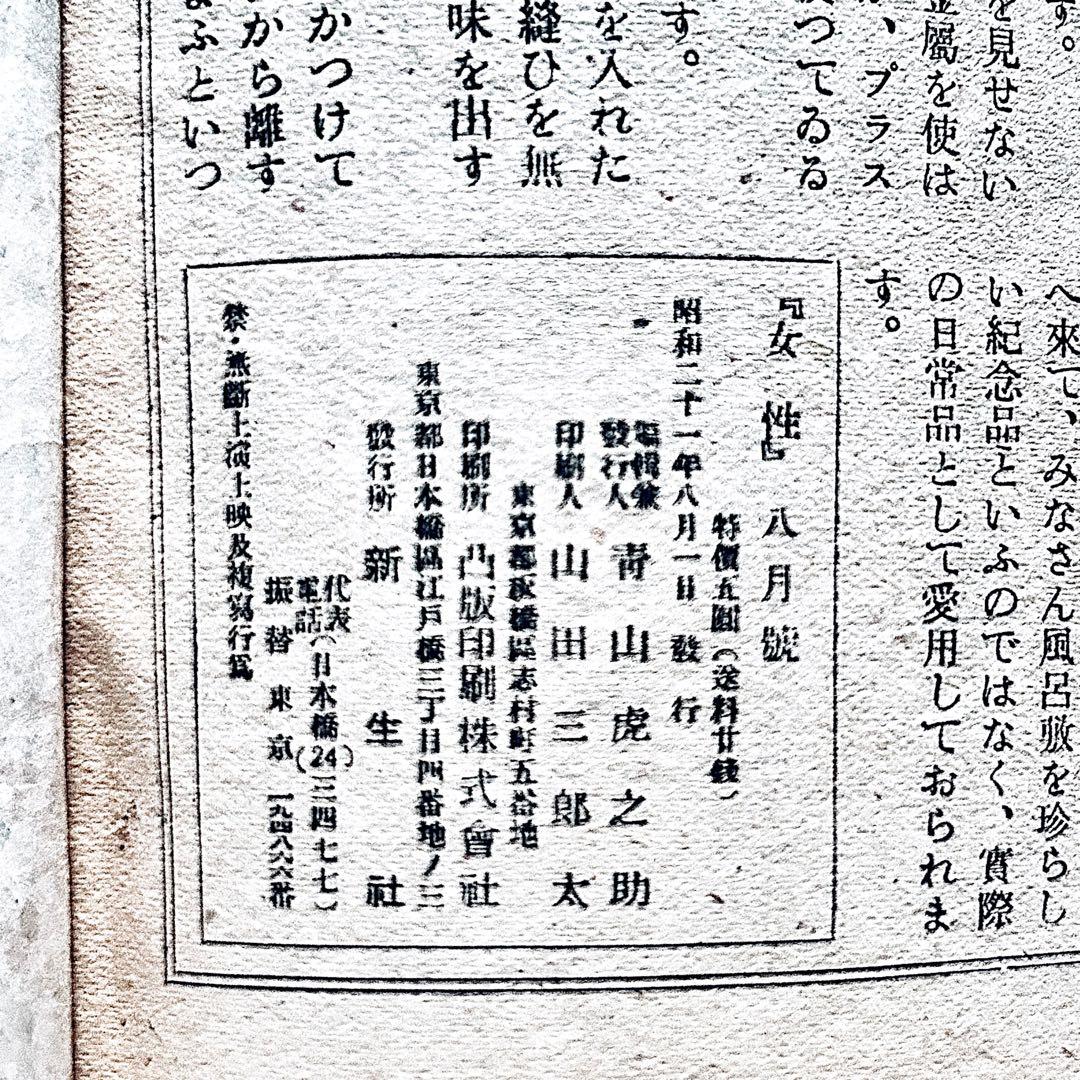 す。
を見せない
金屬を使は
、プラス
つてゐる
す。
を入れた
縫ひを無
味を出す
かつけて
から離す
まふといつ
へ來て、みなさん風呂敷を珍らし
い紀念品といふのではなく、實際
の日常品として愛用しておられま
す。
『女性』八月號
特價五圓（送料廿錢）
昭和二十一年八月一日發行
編輯兼
發行人 靑山虎之助
印刷人 山田三郎太
東京都板橋區志村町五番地
印刷所 凸版印刷株式會社
東京都日本橋區江戸橋三丁目四番地ノ三
發行所 新生社
代表
電話（日本橋(24)三四七七）
振替東京一九四八六六番
禁・無斷上演上映及複寫行爲